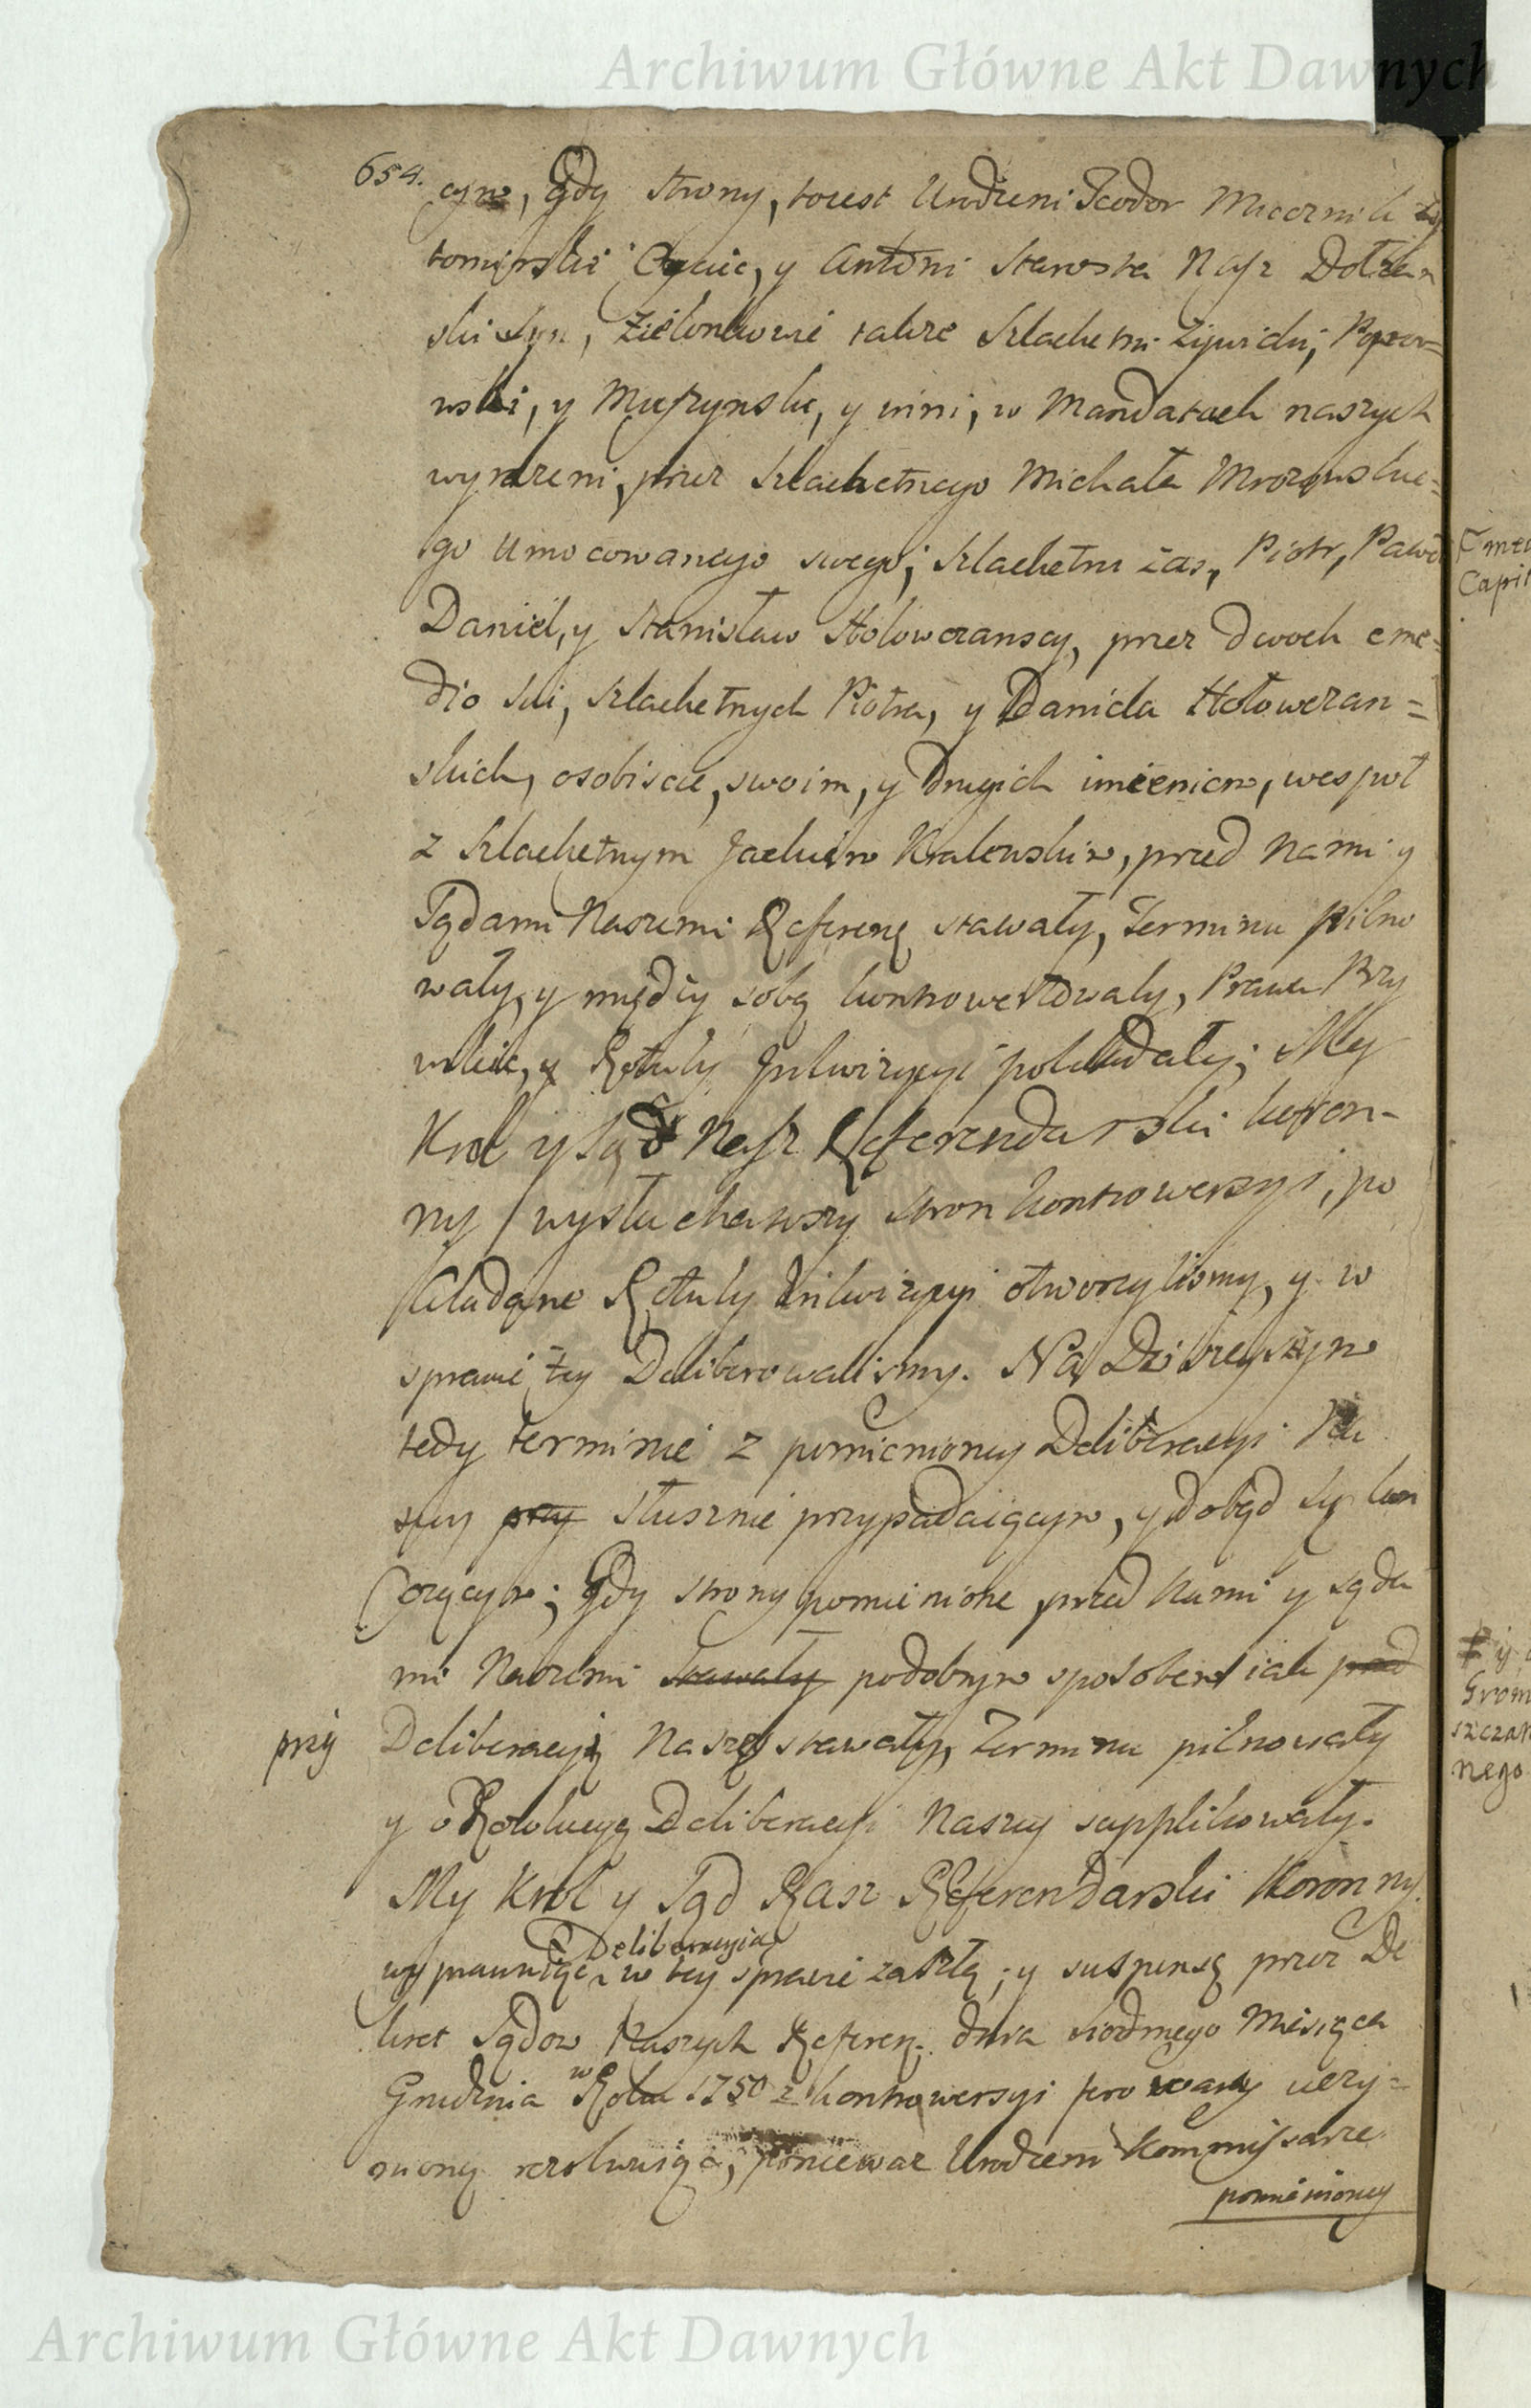 Archiwum Główne Akt Dawnych
654.
cym, Gdy strony, toiest Urodzeni Teodor Miecznik Ży
tomirski Oyciec, y Antoni Starosta Nasz Dołżan
ski Syn, Zielonkowie także Szlachetni Zywicki,
wski, y Muszynski, y inni, w Mandatach naszych
wyrażeni, przez Szlachetnego Michała Mrozowskie=
go Umocowanego swego; Szlachetni zas, Piotr, Paweł
Daniel, y Stanisław Hołowczanscy, przez dwoch e me=
dio sui, Szlachetnych Piotra, y Daniela Hołowczan=
skich, osobiscie, swoim, y drugich imieniem, wespoł
z Szlachetnym Jackiem Kralewskim, przed Nami y
Sądami Naszemi Referen: stawały, Terminu pilno
wały, y między sobą kontrowertowały, Prawa Przy
wileie, y Rotuły Inkwizycyi pokładały; My
Krol y Sąd Nasz Referendarski koron-
ny wysłuchawszy stron kontrowersyi, po
kładane Rotuły Inkwizycyi otworzylismy, y w
sprawie tey Deliberowalismy. Na Dzisieyszym
tedy terminie z pomienioney Deliberacyi Na
szey przy słusznie przypadaiącym, y dotąd się kon
czącym; Gdy strony pomienione przed Nami y sąda
mi Naszemi stawały podobnym sposobem iak przed
przy Deliberacyi Naszey stawały, Terminu pilnowały
y o Rezolucyą Deliberacyi Naszey supplikowały.
My Krol y Sąd Nasz Referendarski Koronny
Deliberacyią
wyprawuiąc w tey sprawie zaszłą, y suspensę przez De
kret Sądow Naszych Referen: dnia siodmego Miesiąca
Grudnia w Roku 1750 z kontrowersyi
nioną rezolwuiąc, ponieważ Urodzeni Kommissarze
pomienioney
Capit
Grom
szczan
nego
Archiwum Główne Akt Dawnych